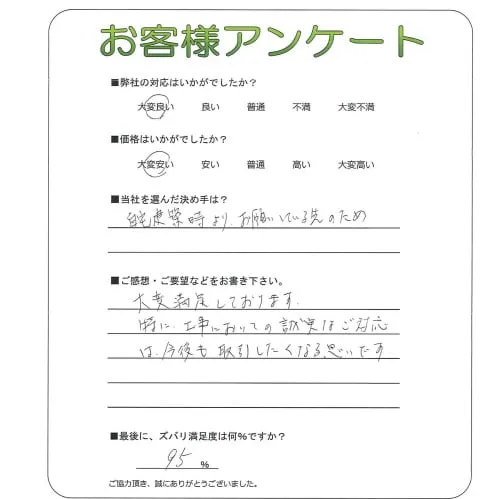 お客様アンケート
■弊社の対応はいかがでしたか？
大変良い 良い 普通 不満 大変不満
■価格はいかがでしたか？
大変安い 安い 普通 高い 大変高い
■当社を選んだ決め手は？
自宅建築時より、お願いしている先のため
■ご感想・ご要望などをお書き下さい。
大変満足しております。
特に、工事においての誠実なご対応
は、今後も取引したくなる思いです
■最後に、ズバリ満足度は何％ですか？
95 ％
ご協力頂き、誠にありがとうございました。